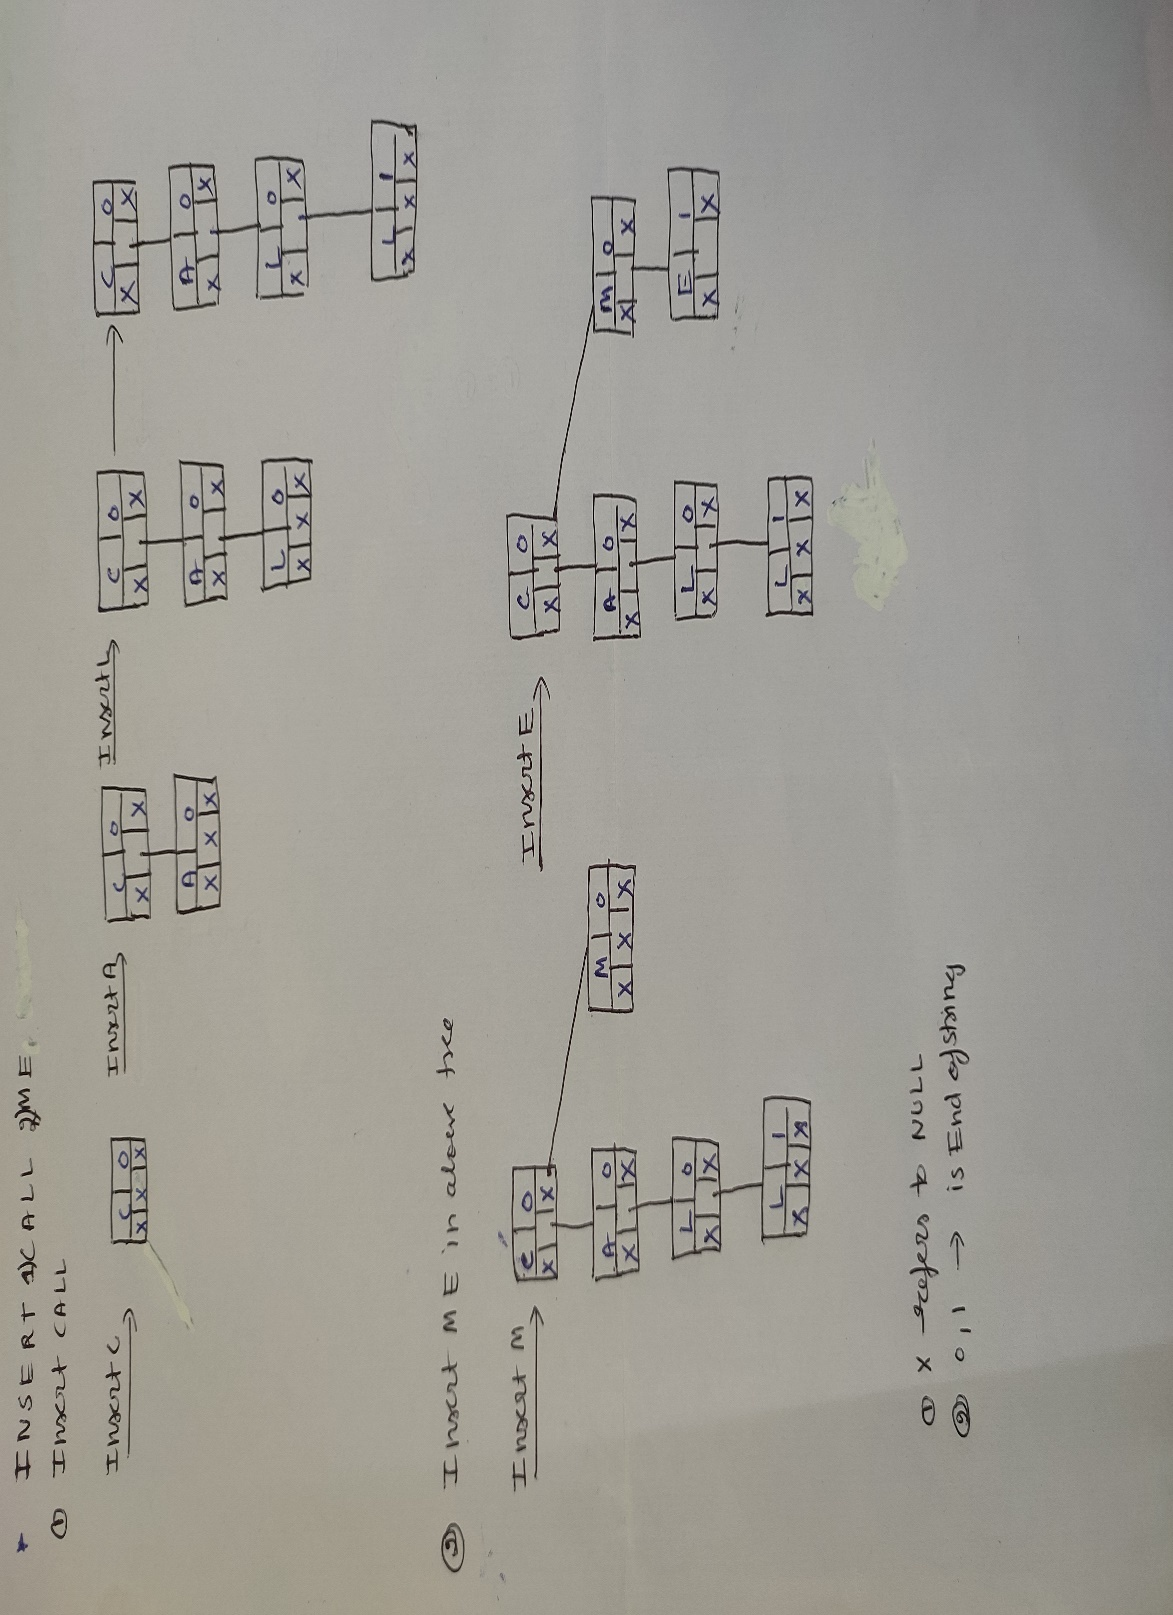 * INSERT 1) CALL 2) ME.
① Insert CALL
Insert C
C 0
X X X
Insert A
C 0
X X
A 0
X X X
Insert L
C 0
X X
A 0
X X
L 0
X X X
C 0
X X
A 0
X X
L 0
X X
L 1
X X X
② Insert ME in above tree
Insert M
C 0
X X
A 0
X X
L 0
X X
L 1
X X X
M 0
X X X
Insert E
C 0
X X
A 0
X X
L 0
X X
L 1
X X X
M 0
X X
E 1
X X
① X refers to NULL
② 0, 1 → is End of string